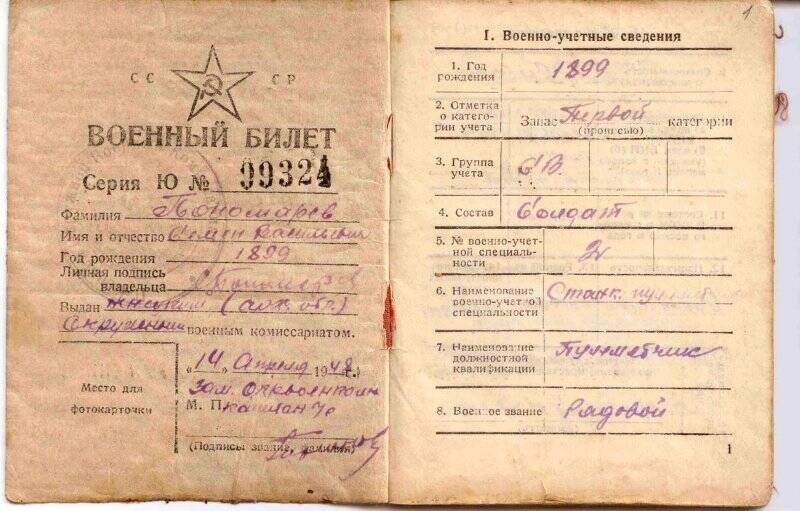 1
СС СР
ВОЕННЫЙ БИЛЕТ
Серия Ю № 99324
Фамилия Пономарев
Имя и отчество Семен Васильевич
Год рождения 1899
Личная подпись
владельца
Выдан (алж. обл.)
военным комиссариатом.
"14" Апреля 1948 г.
Место для
фотокарточки
М. П. капитан
(Подпись, звание, фамилия)
I. Военно-учетные сведения
1. Год
рождения
1899
2. Отметка
о катего-
рии учета
Запас Первой категории
(прописью)
3. Группа
учета
СВ.
4. Состав
Солдат
5. № военно-учет-
ной специаль-
ности
6. Наименование
военно-учетной
специальности
Станк.
7. Наименование
должностной
квалификации
Пулеметчик
8. Военное звание
Рядовой
1